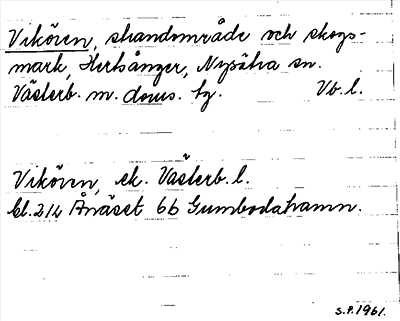 Vikören, strandområde och skogs-
mark, Hertsånger, Nysätra sn.
Västerb. m. doms. tg. Vb. l.
Vikören, ek. Västerb. l.
bl. 212 Ånäset 6b Gumbodahamn.
S.P. 1961.